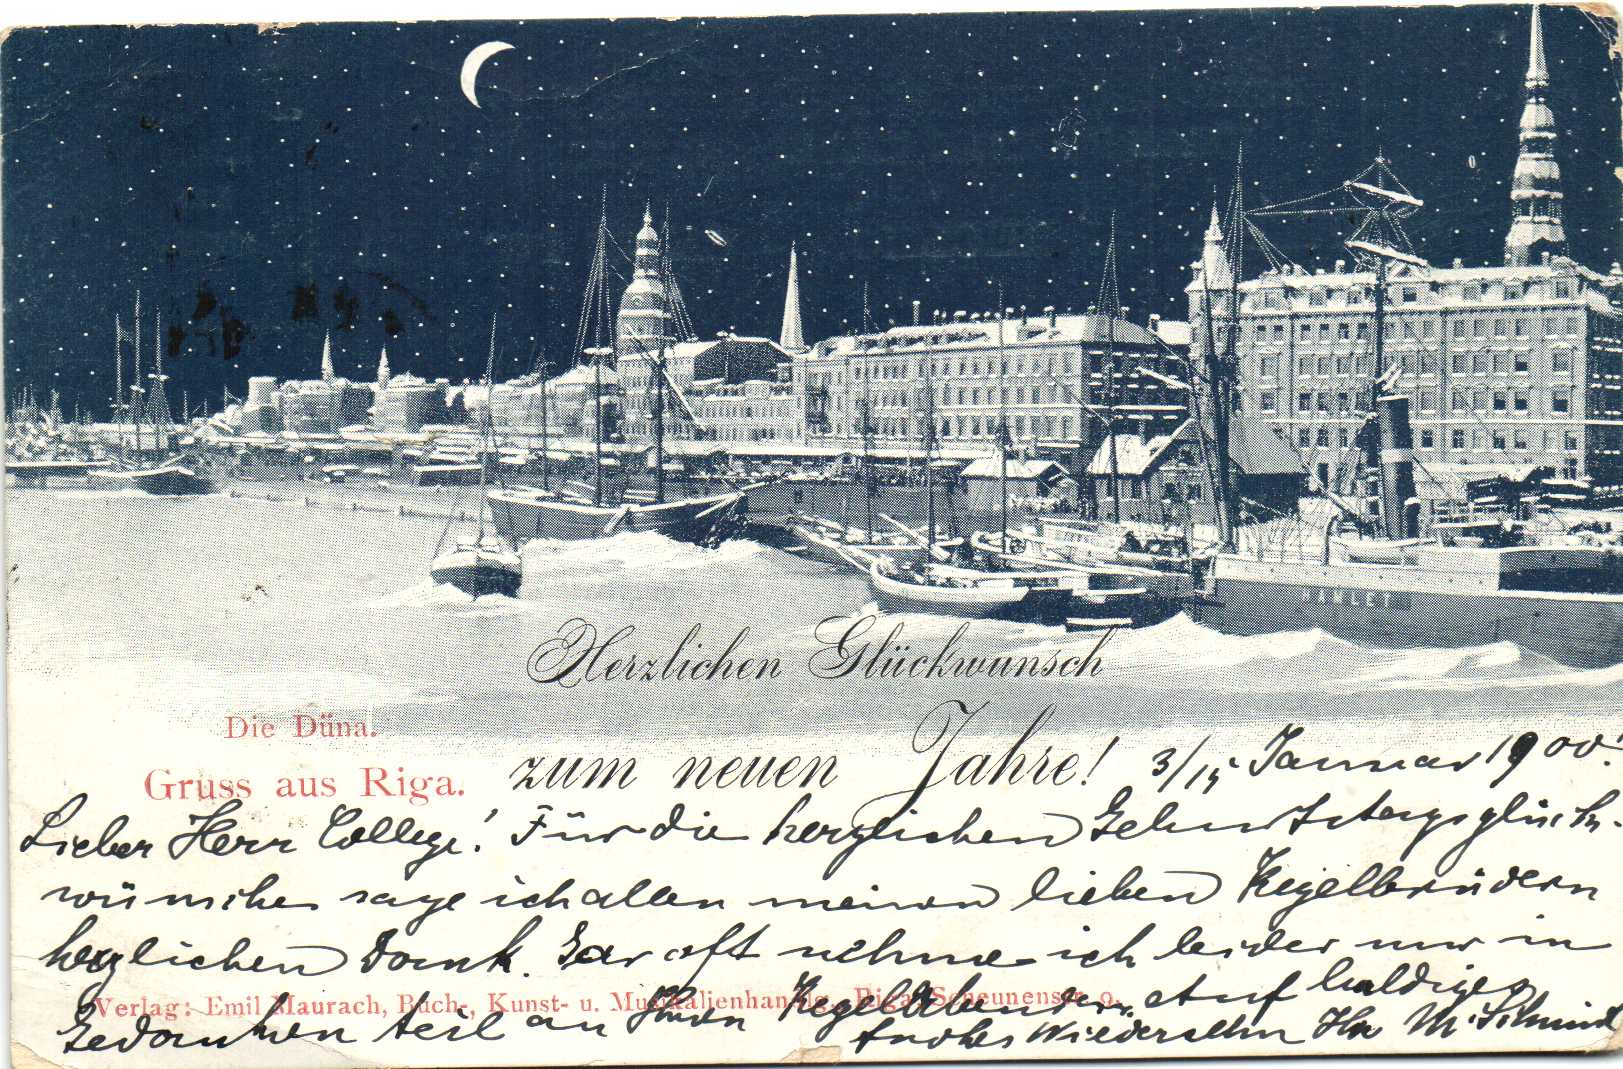 HAMLET
Herzlichen Glückwunsch
zum neuen Jahre!
Die Düna.
Gruss aus Riga.
3/15 Januar 1900.
Lieber Herr College! Für die herzlichen Geburtstagsglück-
wünsche sage ich allen meinen lieben Kegelbrüdern
herzlichen Dank. Gar oft nehme ich leider nur in
Gedanken teil an Ihren Kegelabenden. Auf baldiges
frohes Wiedersehn Ihr M. Schmidt
Verlag: Emil Maurach, Buch-, Kunst- u. Musikalienhandlg., Riga, Scheunenstr. 9.